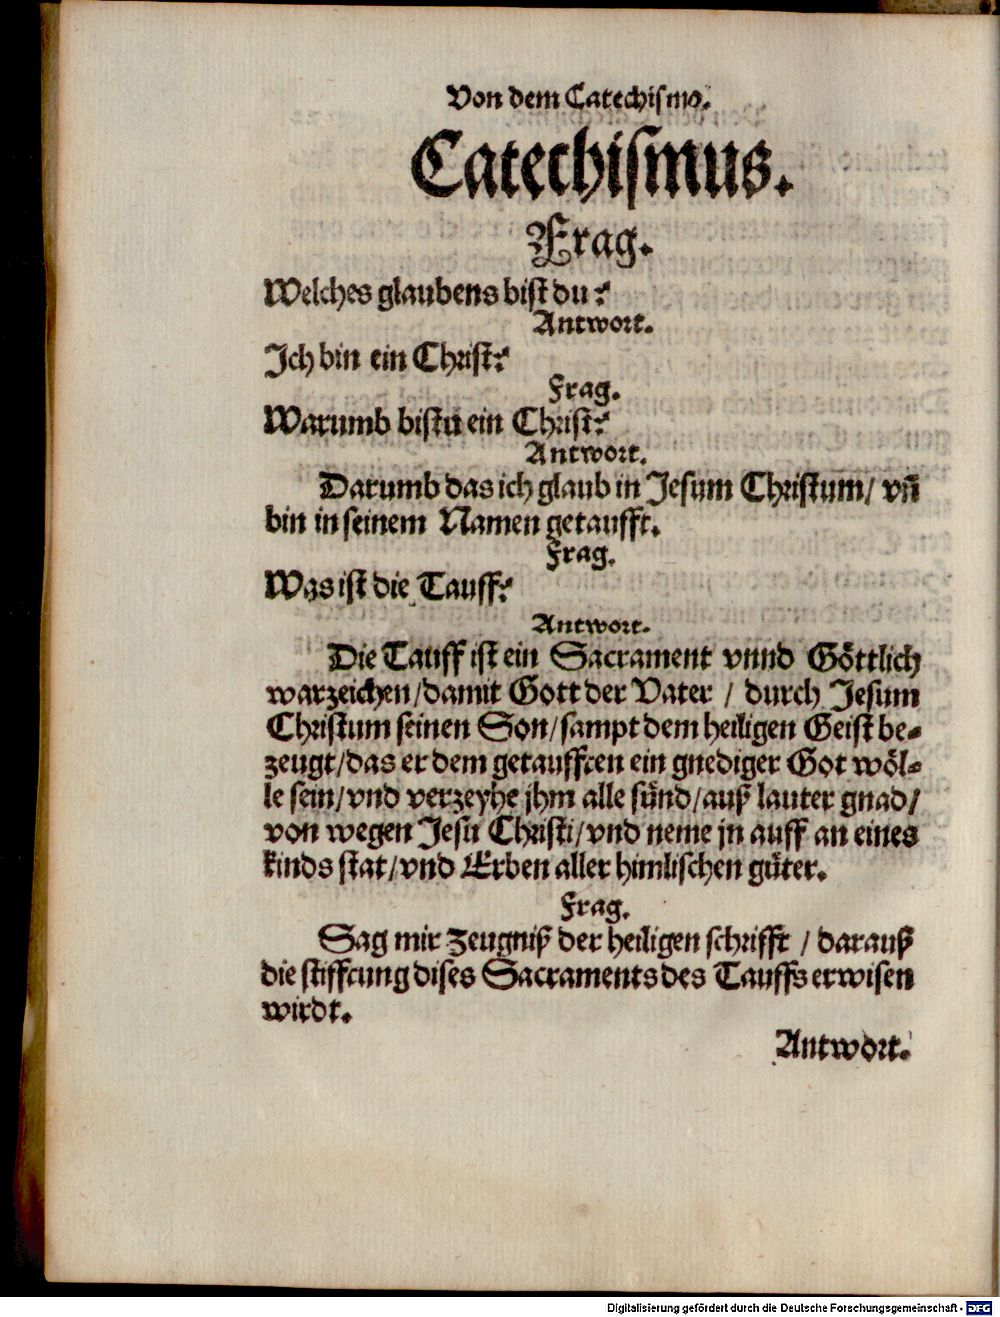 Von dem Catechismo.
Catechismus.
Frag.
Welches glaubens bist du?
Antwort.
Ich bin ein Christ?
Frag.
Warumb bistu ein Christ?
Antwort.
Darumb das ich glaub in Jesum Christum/ vñ
bin in seinem Namen getaufft.
Frag.
Was ist die Tauff?
Antwort.
Die Tauff ist ein Sacrament vnnd Göttlich
warzeichen/damit Gott der Vater / durch Jesum
Christum seinen Son/sampt dem heiligen Geist be-
zeugt/das er dem getaufften ein gnediger Got wöl-
le sein/vnd verzeyhe jhm alle sünd/auß lauter gnad/
von wegen Jesu Christi/vnd neme jn auff an eines
kinds stat/vnd Erben aller himlischen güter.
Frag.
Sag mir Zeugniß der heiligen schrifft / darauß
die stifftung dises Sacraments des Tauffs erwisen
wirdt.
Antwort.
Digitalisierung gefördert durch die Deutsche Forschungsgemeinschaft - DFG